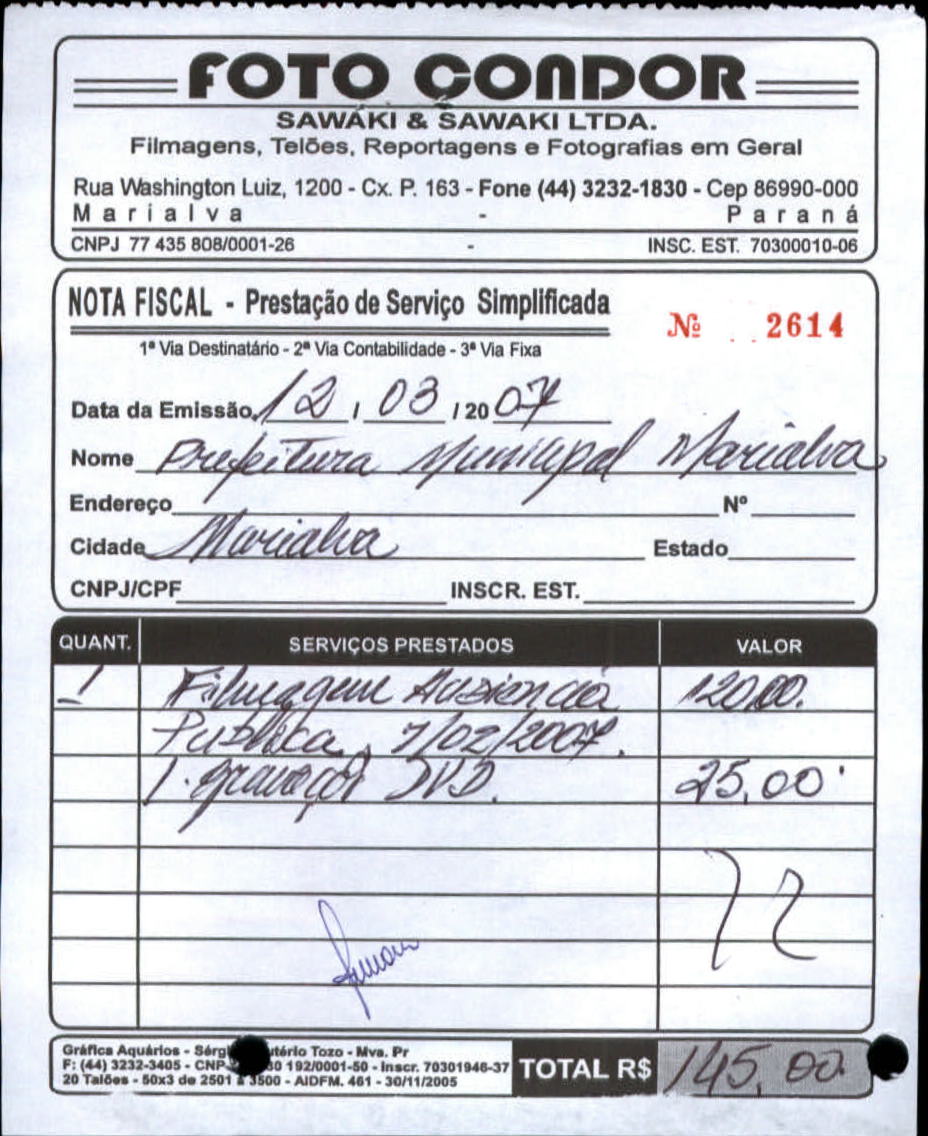 FOTO CONDOR
SAWAKI & SAWAKI LTDA.
Filmagens, Telões, Reportagens e Fotografias em Geral
Rua Washington Luiz, 1200 - Cx. P. 163 - Fone (44) 3232-1830 - Cep 86990-000
Marialva - Paraná
CNPJ 77 435 808/0001-26 - INSC. EST. 70300010-06
NOTA FISCAL - Prestação de Serviço Simplificada
Nº 2614
1ª Via Destinatário - 2ª Via Contabilidade - 3ª Via Fixa
Data da Emissão 12 / 03 / 2007
Nome Prefeitura Municipal Marialva
Endereço Nº
Cidade Marialva Estado
CNPJ/CPF INSCR. EST.
QUANT. SERVIÇOS PRESTADOS VALOR
1 Filmagem Audiencia 120,00.
Publica, 7/02/2007.
1. gravação DVD. 25,00
Gráfica Aquários - Tozo - Mva. Pr
F: (44) 3232-3405 - 192/0001-50 - Inscr. 70301946-37
20 Talões - 50x3 de 2501 a 3500 - AIDFM. 461 - 30/11/2005
TOTAL R$ 145,00